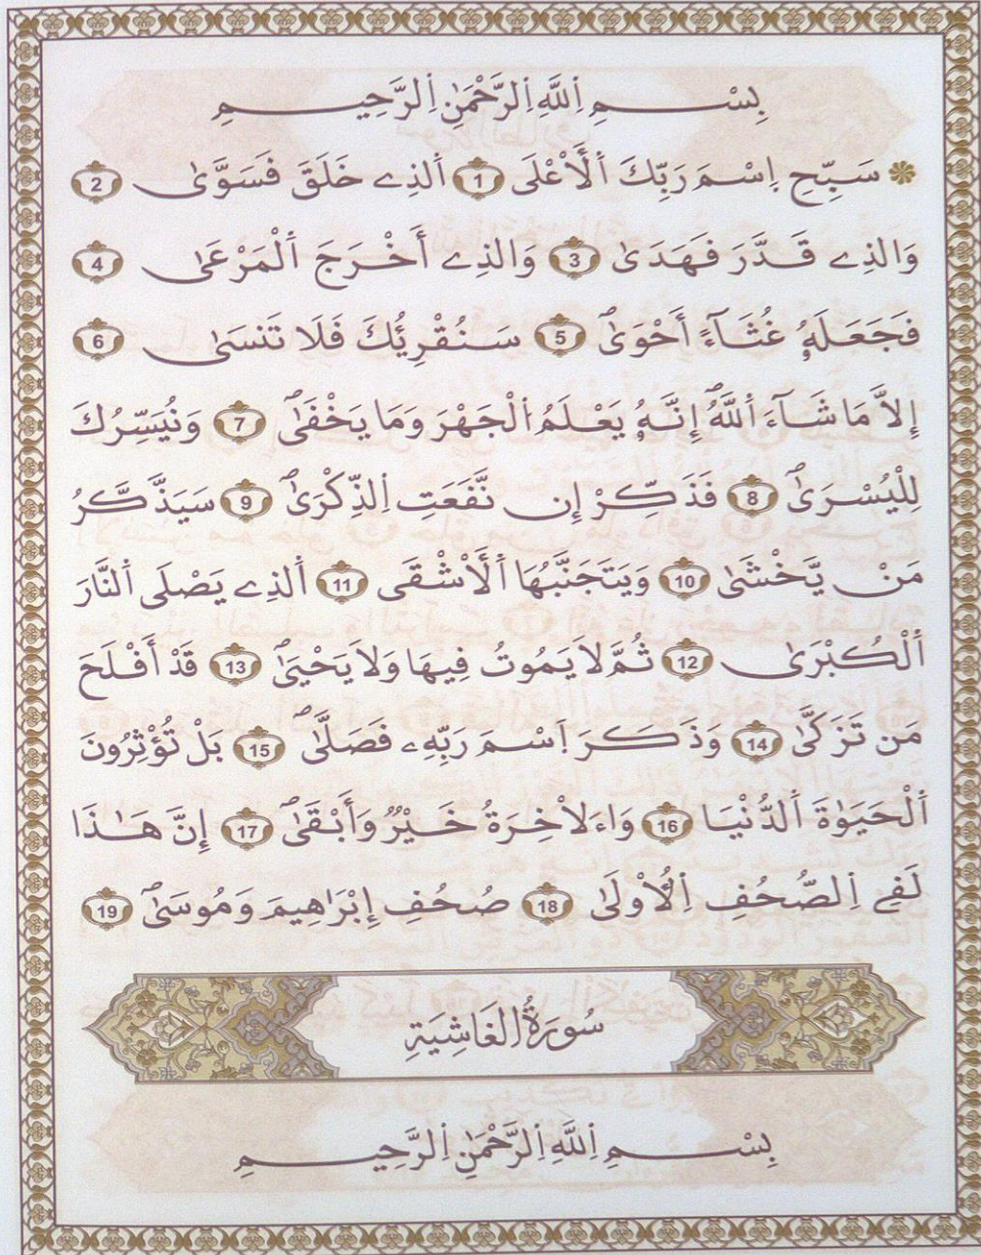 بِسْمِ اِ۬للَّهِ اِ۬لرَّحْمَٰنِ اِ۬لرَّحِيمِ
سَبِّحِ اِ۪سْمَ رَبِّكَ اَ۬لَأَعْلَى 1 اَ۬لذِے خَلَقَ فَسَوَّىٰ 2
وَالذِے قَدَّرَ فَهَدَىٰ 3 وَالذِے أَخْرَجَ اَ۬لْمَرْعَىٰ 4
فَجَعَلَهُۥ غُثَآءً أَحْوَىٰۖ 5 سَنُقْرِئُكَ فَلَا تَنسَىٰ 6
إِلَّا مَا شَآءَ اَ۬للَّهُۖ إِنَّهُۥ يَعْلَمُ اُ۬لْجَهْرَ وَمَا يَخْفَىٰۖ 7 وَنُيَسِّرُكَ
لِلْيُسْرَىٰۖ 8 فَذَكِّرْ إِن نَّفَعَتِ اِ۬لذِّكْرَىٰۖ 9 سَيَذَّكَّرُ
مَنْ يَّخْشَىٰ 10 وَيَتَجَنَّبُهَا اَ۬لَأَشْقَى 11 اَ۬لذِے يَصْلَى اَ۬لنَّارَ
اَ۬لْكُبْرَىٰ 12 ثُمَّ لَا يَمُوتُ فِيهَا وَلَا يَحْيَىٰۖ 13 قَدْ أَفْلَحَ
مَن تَزَكَّىٰ 14 وَذَكَرَ اَ۪سْمَ رَبِّهِۦ فَصَلَّىٰۖ 15 بَلْ تُؤْثِرُونَ
اَ۬لْحَيَوٰةَ اَ۬لدُّنْيَا 16 وَاءَلَاخِرَةُ خَيْرٌ وَأَبْقَىٰۖ 17 إِنَّ هَٰذَا
لَفِے اِ۬لصُّحُفِ اِ۬لُأولَىٰ 18 صُحُفِ إِبْرَٰهِيمَ وَمُوسَىٰۖ 19
سُورَةُ الْغَاشِيَةِ
بِسْمِ اِ۬للَّهِ اِ۬لرَّحْمَٰنِ اِ۬لرَّحِيمِ